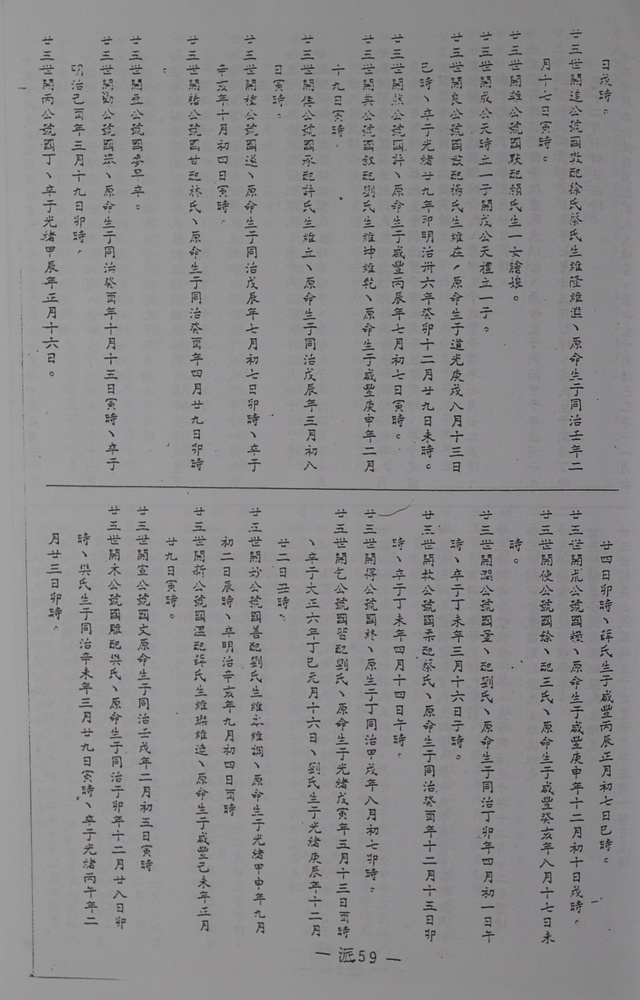 日戌時。
廿三世開進公號國 配徐氏蔡氏生維隆維 、原命生于同治壬年二
月十七日寅時。
廿三世開雄公號國 配賴氏生一女 娘。
廿三世開成公天時立一子開茂公天禮立一子。
廿三世開良公號國 配楊氏生維在、原命生于道光庚戌八月十三日
巳時、卒于光緒廿九年卯明治卅六年癸卯十二月廿九日未時。
廿三世開 公號國計、原命生于咸豐丙辰年七月初七日寅時。
廿三世開 公號國叙配劉氏生維坤維乾、原命生于咸豐庚申年二月
十九日寅時。
廿三世開傳公號國承配許氏生維立、原命生于同治戊辰年三月初八
日寅時。
廿三世開 公號國 、原命生于同治戊辰年七月初七日卯時、卒于
辛亥年十月初四日寅時。
廿三世開 公號國甘配林氏、原命生于同治癸酉年四月廿九日卯時
。
廿三世開 公號國 早卒。
廿三世開勤公號國 、原命生于同治癸酉年十月十三日寅時、卒于
明治己酉年三月十九日卯時。
廿三世開丙公號國丁、卒于光緒甲辰年正月十六日。
廿四日卯時、薛氏生于咸豐丙辰正月初七日巳時。
廿三世開 公號國 、原命生于咸豐庚申年十二月初十日戌時。
廿三世開使公號國 、配王氏、原命生于咸豐癸亥年八月十七日未
時。
廿三世開潤公號國 、配劉氏、原命生于同治丁卯年四月初一日午
時、卒于丁未年三月十六日子時。
廿三世開 公號國柔配蔡氏、原命生于同治癸酉年十二月十三日卯
時、卒于丁未年四月十四日午時。
廿三世開得公號國 、原生于丁同治甲戌年八月初七卯時。
廿三世開乞公號國 配劉氏、原命生于光緒戊寅年五月十三日酉時
、卒于大正六年丁巳元月十六日、劉氏生于光緒庚辰年十二月
廿二日丑時。
廿三世開妙公號國善配劉氏生維 維調、原命生于光緒甲申年九月
初二日辰時、卒明治辛亥年九月初四日酉時
廿三世開新公號國溫配薛氏生維 維 、原命生于咸豐己未年正月
廿九日寅時。
廿三世開 公號國 原命生于同治壬戌年二月初五日寅時
廿三世開木公號國雕配吳氏、原命生于同治丁卯年十二月廿八日卯
時、吳氏生于同治辛未年三月廿九日寅時、卒于光緒丙午年二
月廿三日卯時。
— 派59 —